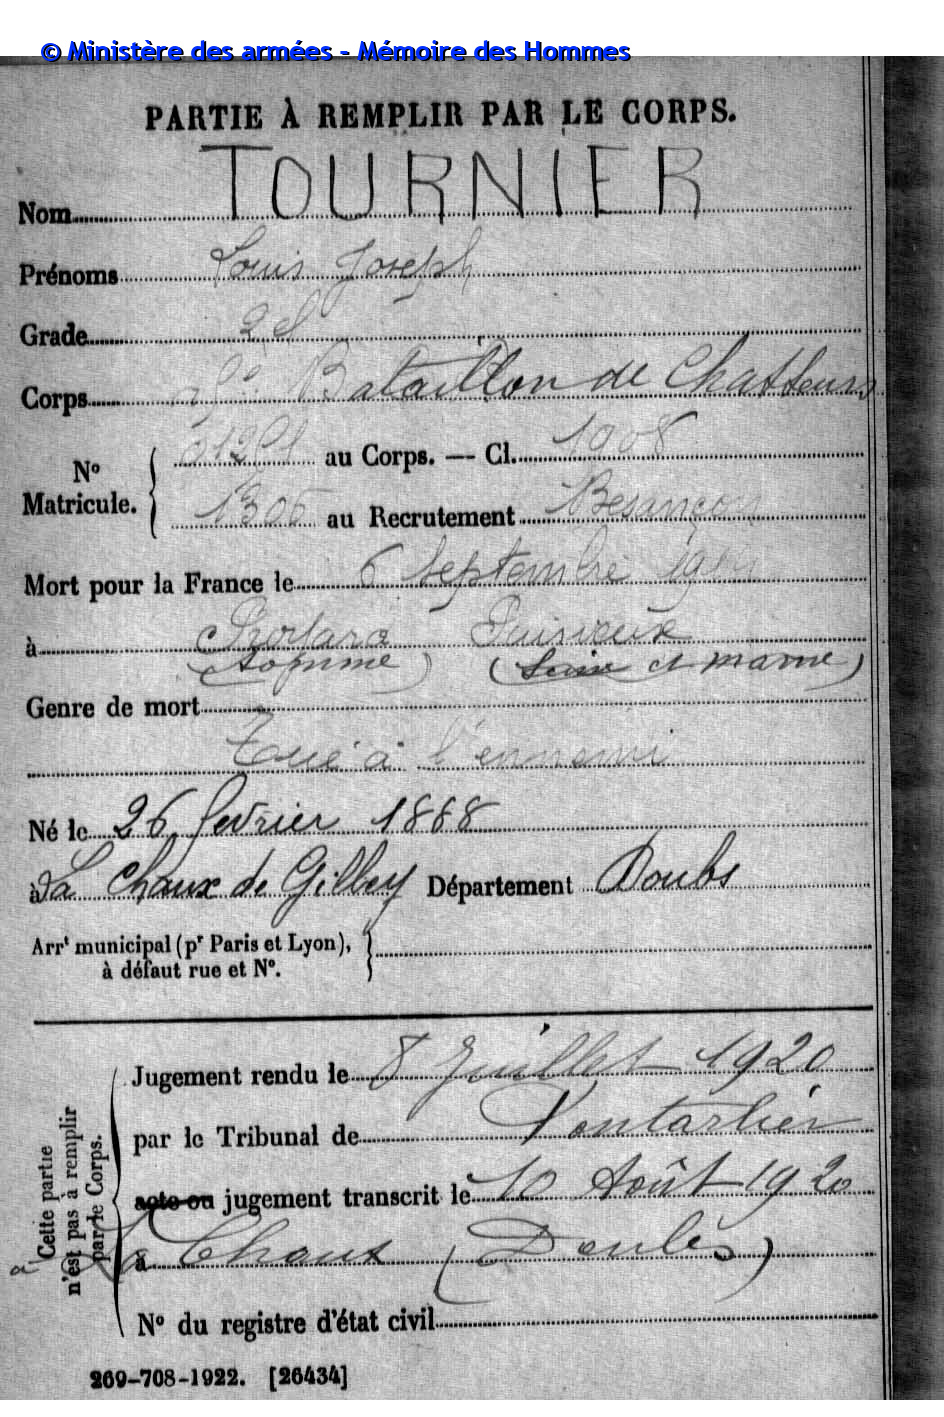 © Ministère des armées - Mémoire des Hommes
PARTIE À REMPLIR PAR LE CORPS.
Nom TOURNIER
Prénoms Louis Joseph
Grade 2
Corps Bataillon de Chasseurs
N° Matricule.
au Corps. — Cl. 1908
1306 au Recrutement Besançon
Mort pour la France le 6 Septembre 1914
à Puisieux
(Somme) (Seine et marne)
Genre de mort
Tué à l'ennemi
Né le 26 février 1888
à La Chaux de Gilley Département Doubs
Arrt municipal (pr Paris et Lyon),
à défaut rue et N°.
Cette partie
n'est pas à remplir
par le Corps.
Jugement rendu le 8 Juillet 1920
par le Tribunal de Pontarlier
acte ou jugement transcrit le 10 Août 1920
à La Chaux (Doubs)
N° du registre d'état civil
269-708-1922. [26434]